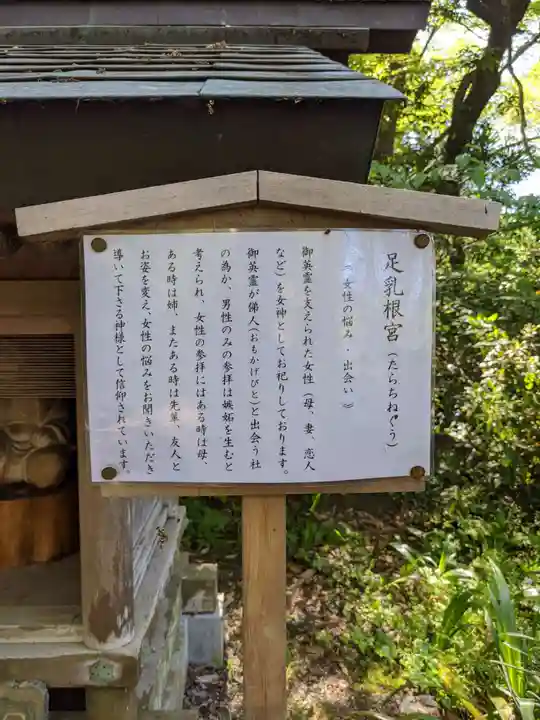 足乳根宮(たらちねぐう)
《 女性の悩み・出会い 》
御英霊を支えられた女性(母、妻、恋人
など)を女神としてお祀りしております。
御英霊が俤人(おもかげびと)と出会う社
の為か、男性のみの参拝は嫉妬を生むと
考えられ、女性の参拝にはある時は母、
ある時は姉、またある時は先輩、友人と
お姿を変え、女性の悩みをお聞きいただき
導いて下さる神様として信仰されています。